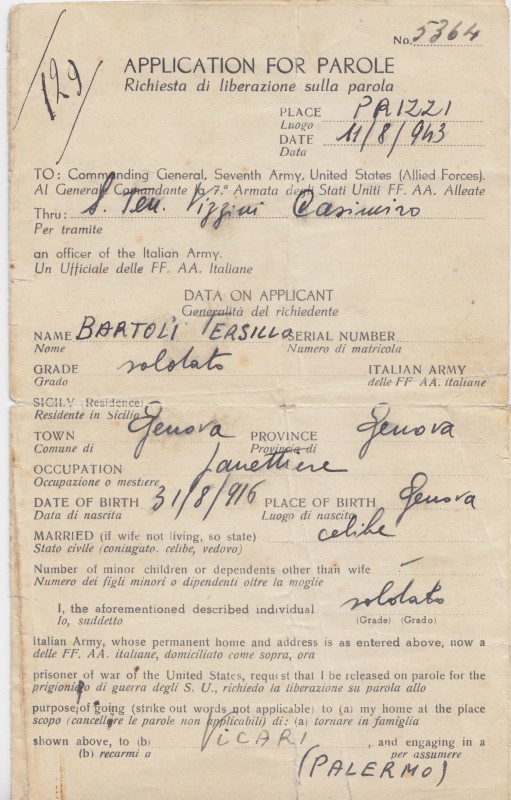 No. 5364
129
APPLICATION FOR PAROLE
Richiesta di liberazione sulla parola
PLACE PRIZZI
Luogo
DATE 11/8/943
Data
TO: Commanding General, Seventh Army, United States (Allied Forces).
Al Generale Comandante la 7.a Armata degli Stati Uniti FF. AA. Alleate
Thru: S. Ten. Vizzini Casimiro
Per tramite
an officer of the Italian Army.
Un Ufficiale delle FF. AA. Italiane
DATA ON APPLICANT
Generalità del richiedente
NAME BARTOLI TERSILLO SERIAL NUMBER
Nome Numero di matricola
GRADE soldato ITALIAN ARMY
Grado delle FF AA. italiane
SICILY (Residence)
Residente in Sicilia
TOWN Genova PROVINCE Genova
Comune di Provincia di
OCCUPATION Panettiere
Occupazione o mestiere
DATE OF BIRTH 31/8/916 PLACE OF BIRTH Genova
Data di nascita Luogo di nascita
MARRIED (if wife not living, so state) celibe
Stato civile (coniugato. celibe, vedovo)
Number of minor children or dependents other than wife –
Numero dei figli minori o dipendenti oltre la moglie
I, the aforementioned described individual soldato
Io, suddetto (Grade) (Grado)
Italian Army, whose permanent home and address is as entered above, now a
delle FF. AA. italiane, domiciliato come sopra, ora
prisoner of war of the United States, request that I be released on parole for the
prigioniero di guerra degli S. U., richiedo la liberazione su parola allo
purpose of going (strike out words not applicable) to (a) my home at the place
scopo (cancellare le parole non applicabili) di: (a) tornare in famiglia
shown above, to (b) VICARI , and engaging in a
(b) recarmi a per assumere
(PALERMO)